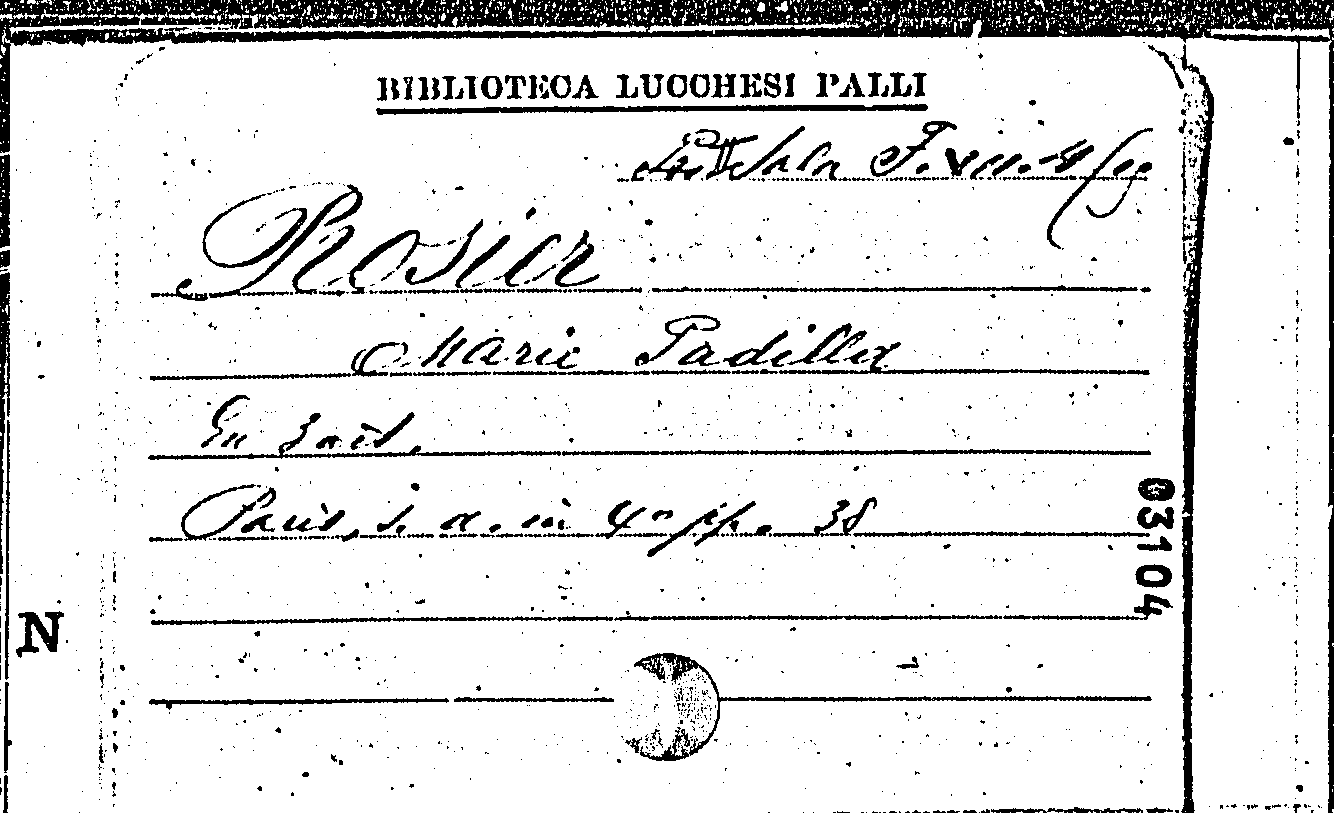 BIBLIOTECA LUCCHESI PALLI
Sala F.
Rosier
Marie Padilla
En 3 act.
Paris, s. a. in 4º pp. 38
03104
N